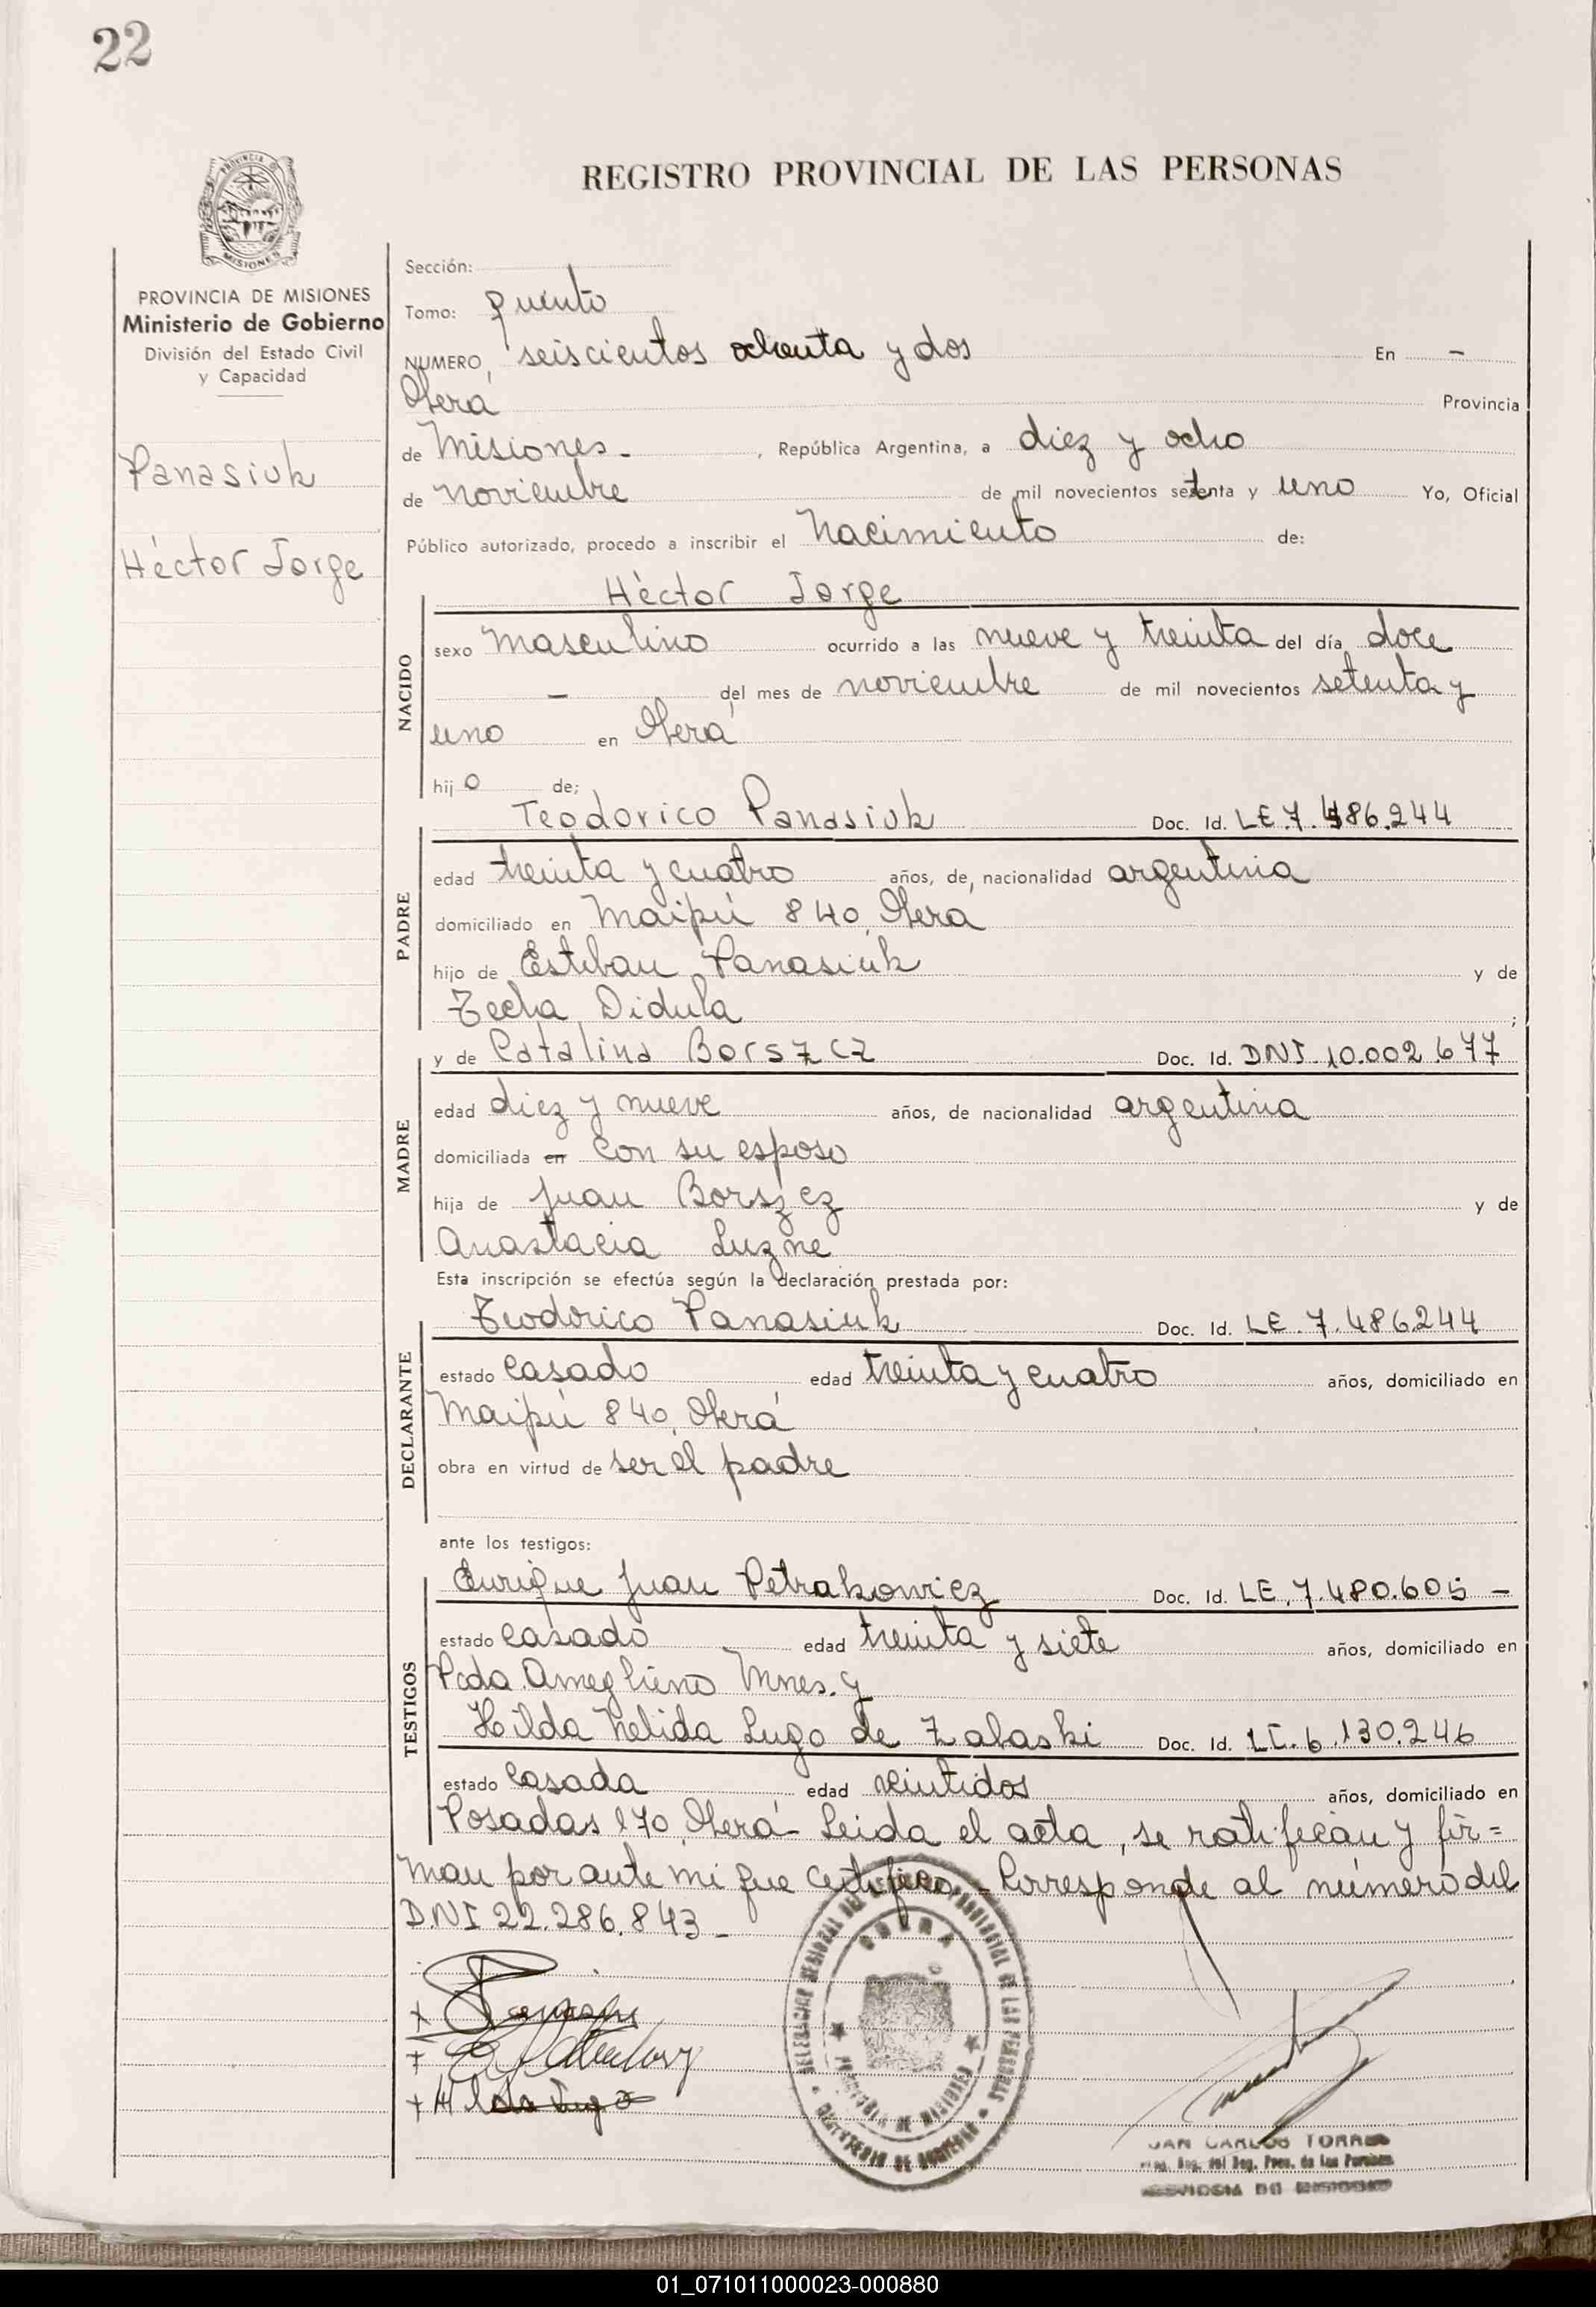 22
PROVINCIA DE MISIONES
REGISTRO PROVINCIAL DE LAS PERSONAS
PROVINCIA DE MISIONES
Ministerio de Gobierno
División del Estado Civil
y Capacidad
Panasiuk
Héctor Jorge
Sección:
Tomo: quinto
NUMERO, seiscientos ochenta y dos En -
Oberá Provincia
de Misiones - , República Argentina, a diez y ocho
de noviembre de mil novecientos setenta y uno Yo, Oficial
Público autorizado, procedo a inscribir el Nacimiento de:
Héctor Jorge
NACIDO
sexo Masculino ocurrido a las nueve y treinta del día doce
- del mes de noviembre de mil novecientos setenta y
uno en Oberá
hijo de;
PADRE
Teodorico Panasiuk Doc. Id. LE.7.486.244
edad treinta y cuatro años, de nacionalidad argentina
domiciliado en Maipú 840, Oberá
hijo de Esteban Panasiuk y de
Tecla Didula ;
MADRE
y de Catalina Borszcz Doc. Id. DNI. 10.002.677
edad diez y nueve años, de nacionalidad argentina
domiciliada en con su esposo
hija de Juan Borszcz y de
Anastacia Luzne
Esta inscripción se efectúa según la declaración prestada por:
DECLARANTE
Teodorico Panasiuk Doc. Id. LE. 7.486244
estado casado edad treinta y cuatro años, domiciliado en
Maipú 840, Oberá
obra en virtud de ser el padre
ante los testigos:
TESTIGOS
Enrique Juan Petrakowicz Doc. Id. LE. 7.480.605 -
estado casado edad treinta y siete años, domiciliado en
Pcda. Ameghino Mnes. y
Hilda Nelida Lugo de Zabaski Doc. Id. LC. 6.130.246
estado casada edad veintidos años, domiciliado en
Posadas 170, Oberá - Leida el acta, se ratifican y fir=
man por ante mi que certifico - Corresponde al número del
DNI 22.286.843 -
DELEGACION REGIONAL DEL REGISTRO PROVINCIAL DE LAS PERSONAS
OBERA
PROVINCIA DE MISIONES
MINISTERIO DE GOBIERNO
Hilda Lugo
JUAN CARLOS TORRES
Reg. del Reg. Prov. de las Personas
PROVINCIA DE MISIONES
01_071011000023-000880